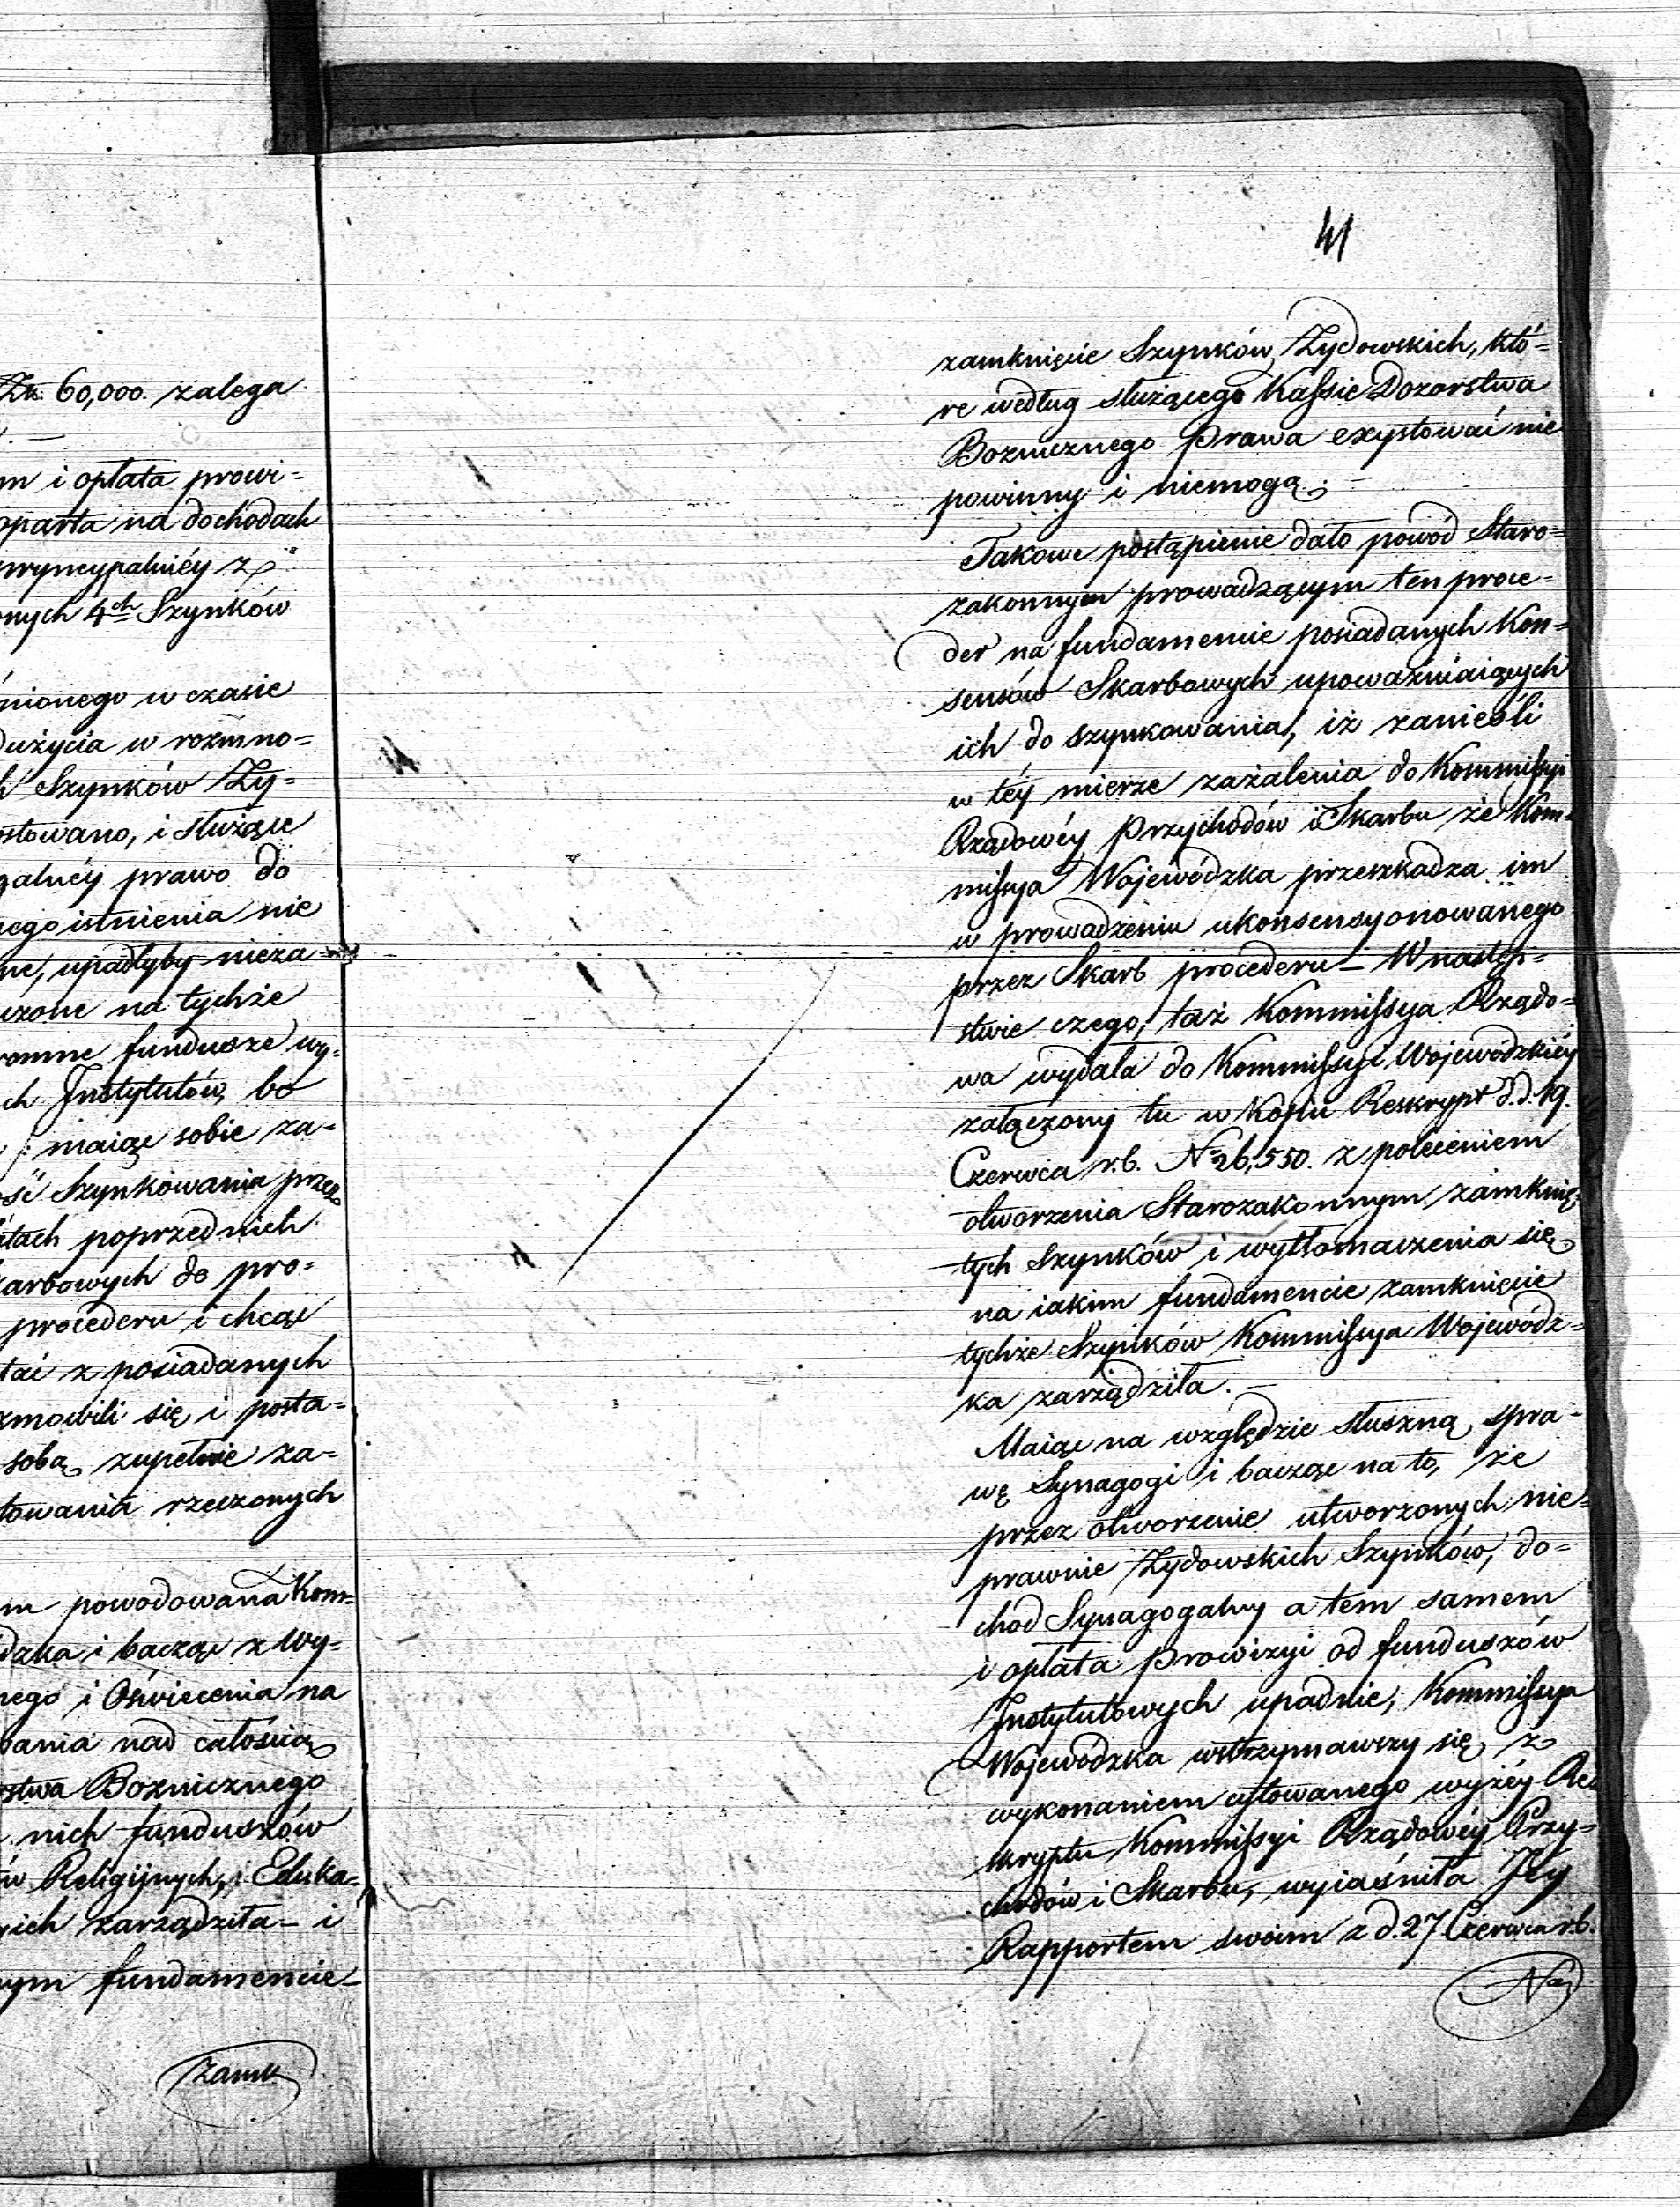 Zł. 60,000. zalega
m i opłata prowi=
oparta na dochodach
pryncypalniéy z
onych 4ch Szynków
nionego w czasie
dużycia w rozmno=
h Szynków Ży=
ostowano, i służące
galnéy prawo do
nego istnienia nie
ne, upadłyby nieza=
czone na tychże
romne fundusze wy=
ch Instytutów, bo
maiąc sobie za=
ość Szynkowania przez
atach poprzednich
karbowych do pro=
procederu i chcąc
tać z posiadanych
zmowili się i posta=
sobą zupełnie za=
towania rzeczonych
m powodowana Kom=
dzka i bacząc z Wy=
nego i Oświecenia na
wania nad całością
rstwa Boznicznego
nich funduszów
w Religijnych, i Eduka=
ich zarządziła – i
nym fundamencie
Zamk
41
zamknięcie Szynków Żydowskich, któ=
re według służącego Kassie Dozorstwa
Boznicznego Prawa exystować nie
powinny i niemogą. –
Takowe postąpienie dało powód Staro=
zakonnym prowadzącym ten proce=
der na fundamencie posiadanych Kon=
sensów Skarbowych upoważniaiących
ich do szynkowania, iż zanieśli
w téy mierze zażalenia do Kommissyi
Rządowéy Przychodów i Skarbu że Kom=
missya Wojewódzka przeszkadza im
w prowadzeniu ukonsensyonowanego
przez Skarb procederu – W następ=
stwie czego, taż Kommissya Rządo=
wa wydała do Kommissyi Wojewódzkiéy
załączony tu w Kopii Reskrypt d.d. 19.
Czerwca r.b. No 26,550. z poleceniem
otworzenia Starozakonnym zamknię=
tych Szynków i wytłomaczenia się
na iakim fundamencie zamknięcie
tychże Szynków Kommissya Wojewódz=
ka zarządziła. –
Maiąc na względzie słuszną spra=
wę Synagogi i bacząc na to, że
przez otworzenie utworzonych nie=
prawnie Żydowskich Szynków, do=
chod Synagogalny a tem samem
i opłata Prowizyi od funduszów
Instytutowych upadnie, Kommissya
Wojewódzka wstrzymawszy się z
wykonaniem cytowanego wyżéy Res
kryptu Kommissyi Rządowéy Przy=
chodów i Skarbu, wyiaśniła Jéy
Rapportem swoim z d. 27 Czerwca r.b.